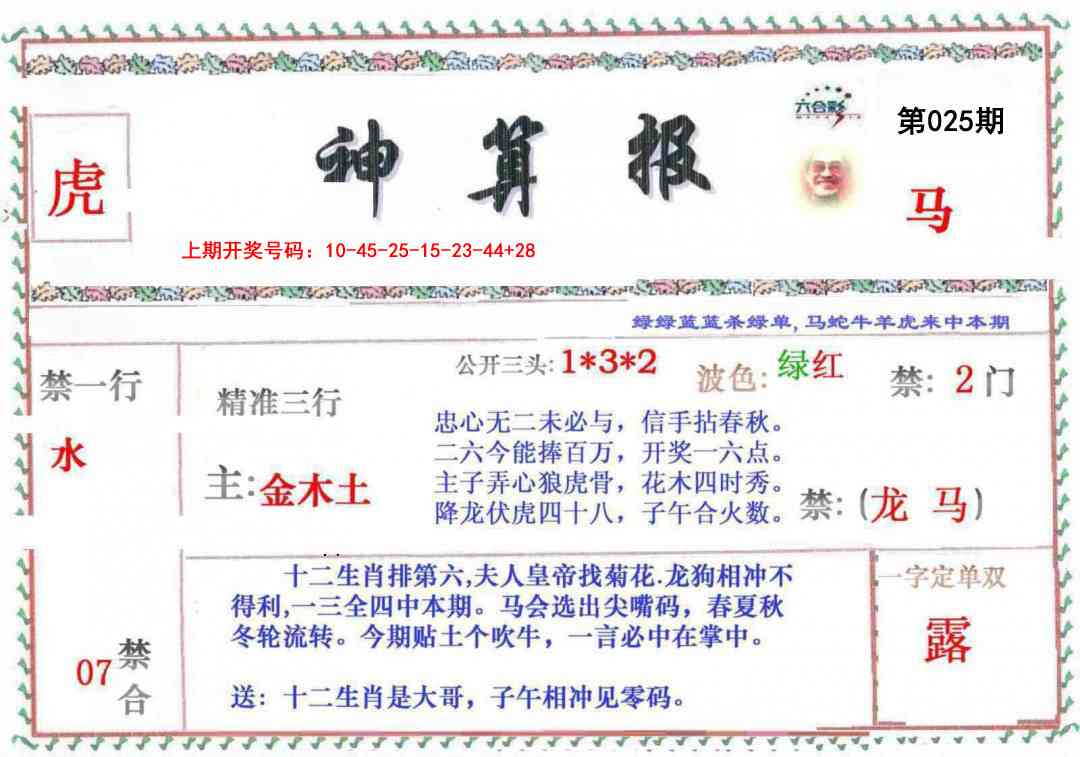 六合彩
第025期
虎
神算报
马
上期开奖号码：10-45-25-15-23-44+28
绿绿蓝蓝杀绿单,马蛇牛羊虎来中本期
禁一行
水
精准三行
主:金木土
公开三头:1*3*2
波色:绿红
禁: 2门
忠心无二未必与，信手拈春秋。
二六今能捧百万，开奖一六点。
主子弄心狼虎骨，花木四时秀。
降龙伏虎四十八，子午合火数。
禁:(龙 马)
十二生肖排第六,夫人皇帝找菊花.龙狗相冲不
得利,一三全四中本期。马会选出尖嘴码，春夏秋
冬轮流转。今期贴土个吹牛，一言必中在掌中。
送：十二生肖是大哥，子午相冲见零码。
07禁合
一字定单双
露